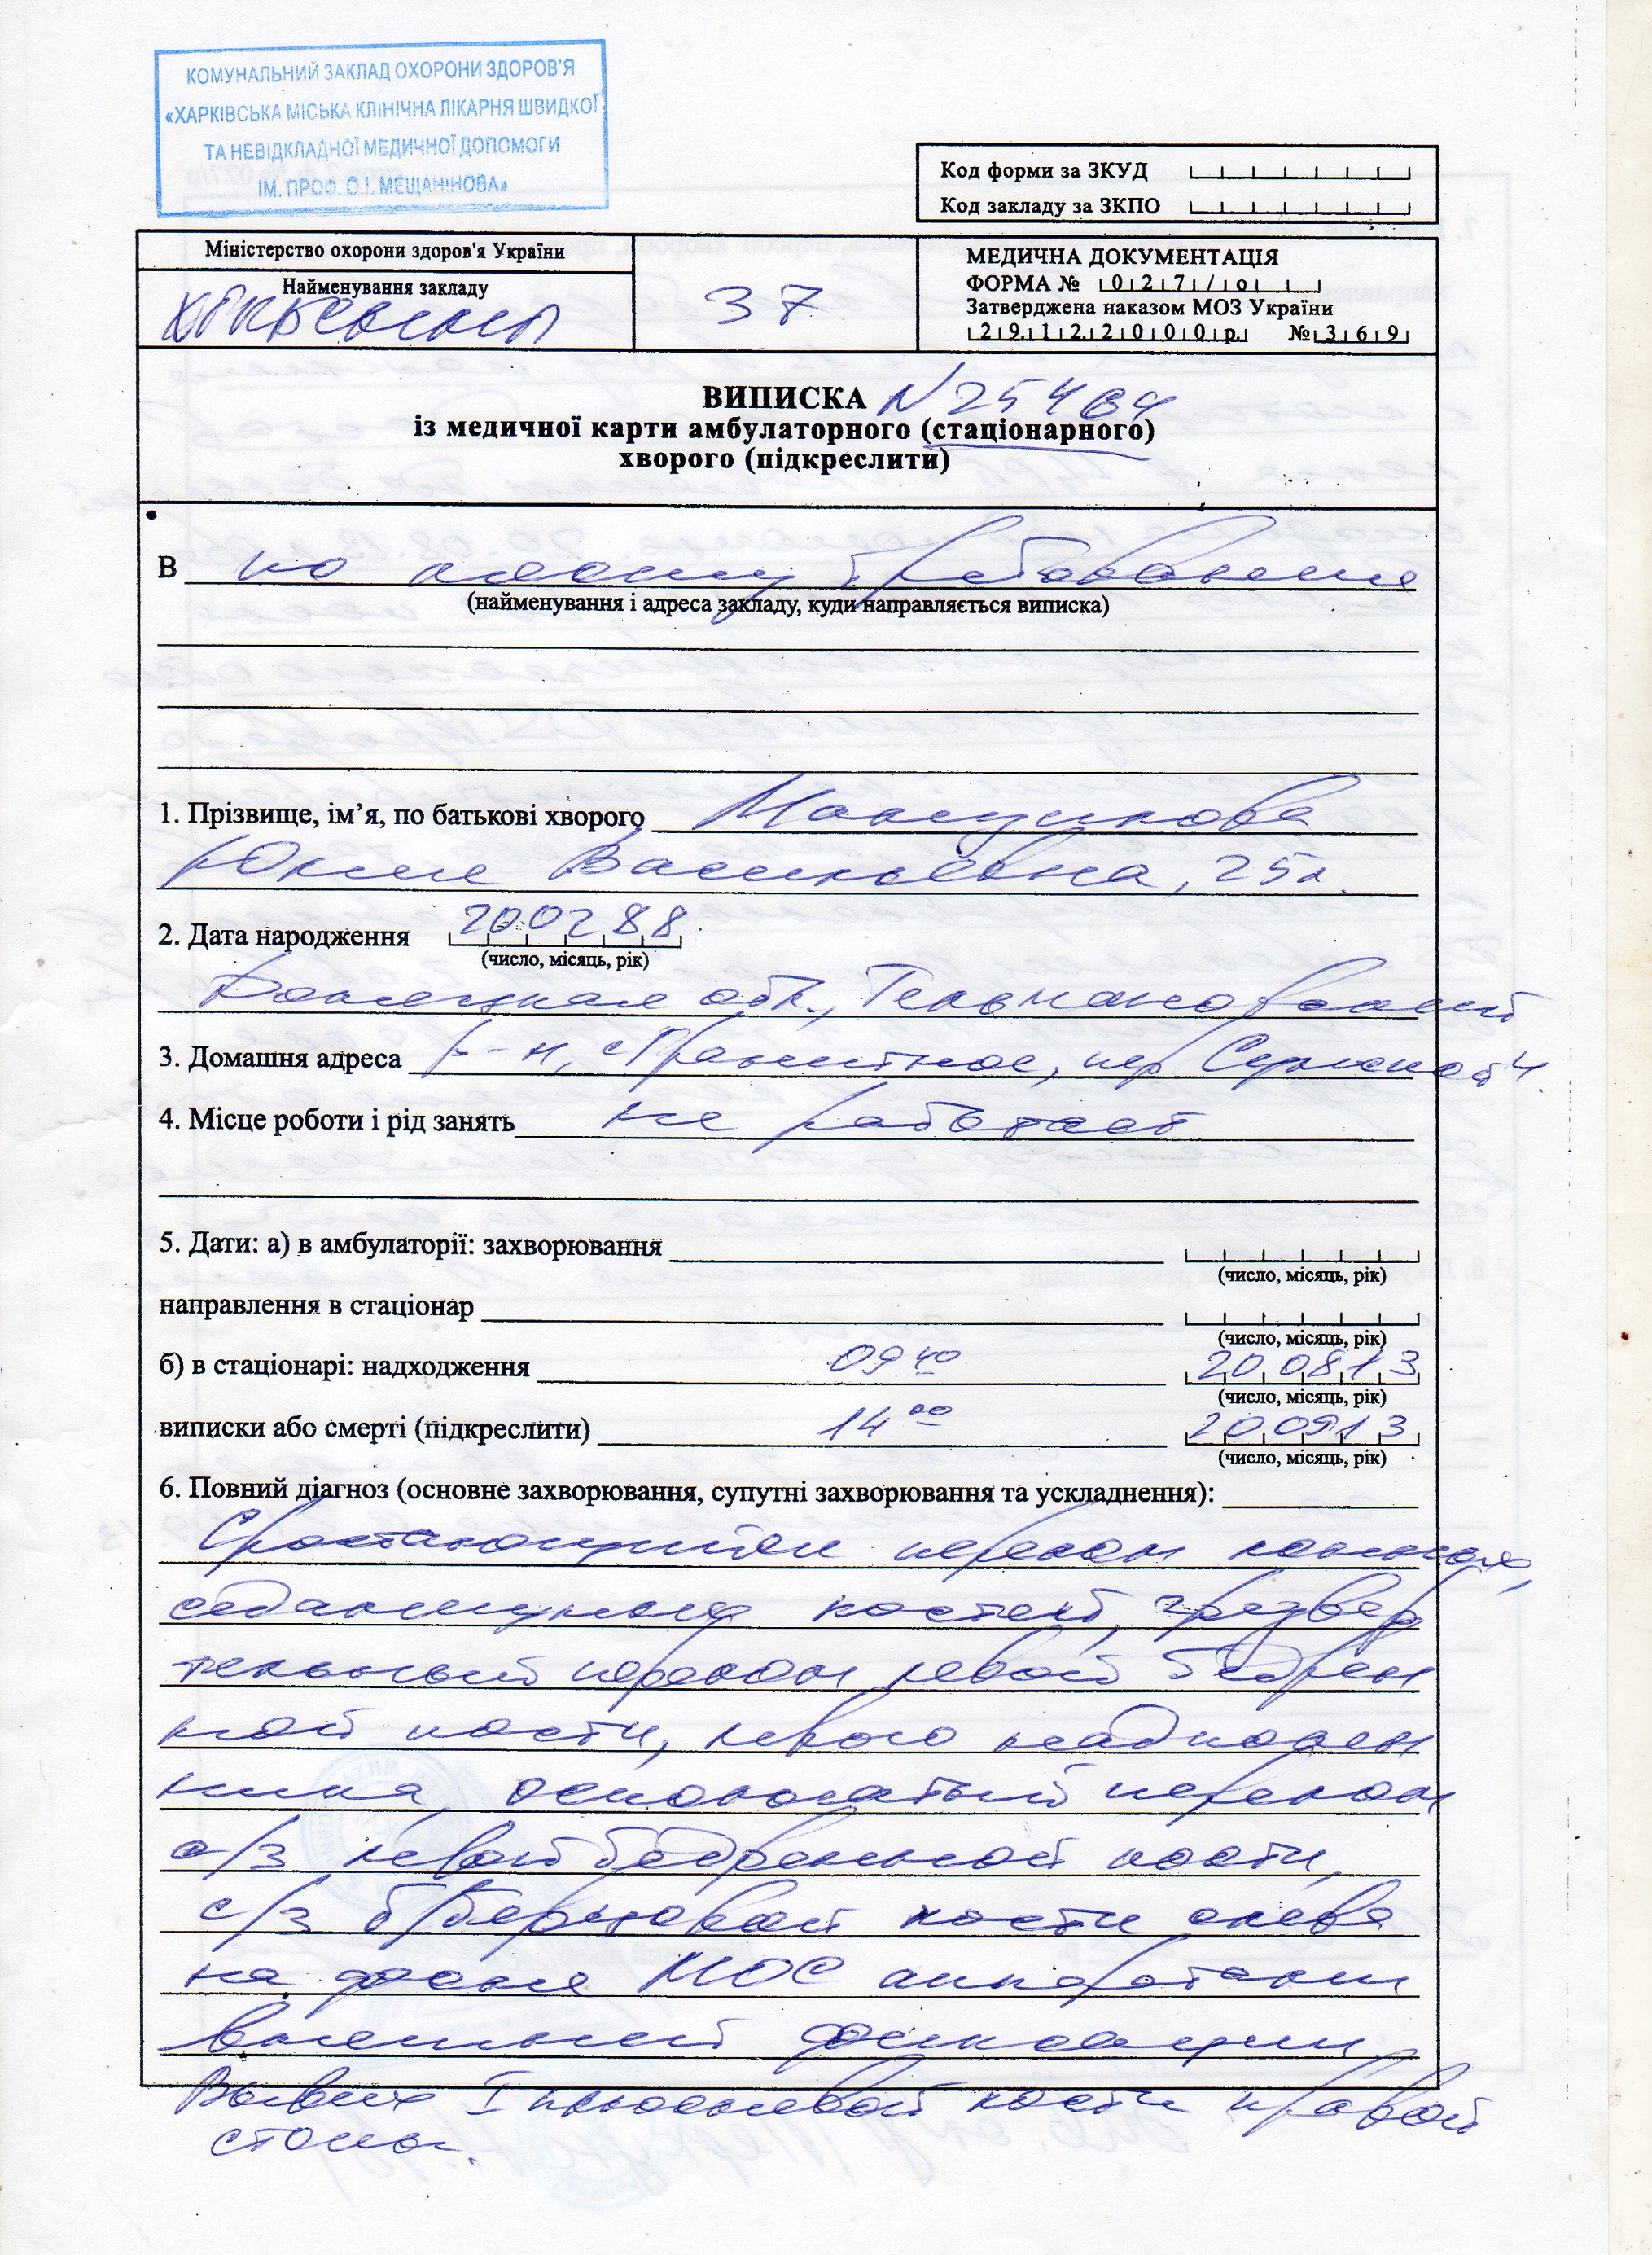 КОМУНАЛЬНИЙ ЗАКЛАД ОХОРОНИ ЗДОРОВ'Я
«ХАРКІВСЬКА МІСЬКА КЛІНІЧНА ЛІКАРНЯ ШВИДКОЇ
ТА НЕВІДКЛАДНОЇ МЕДИЧНОЇ ДОПОМОГИ
ІМ. ПРОФ. О.І. МЕЩАНІНОВА»
Код форми за ЗКУД
Код закладу за ЗКПО
Міністерство охорони здоров'я України
Найменування закладу
37
МЕДИЧНА ДОКУМЕНТАЦІЯ
ФОРМА № 027/о
Затверджена наказом МОЗ України
29.12.2000р. №369
ВИПИСКА N 25464
із медичної карти амбулаторного (стаціонарного)
хворого (підкреслити)
В по месту требования
(найменування і адреса закладу, куди направляється виписка)
1. Прізвище, ім’я, по батькові хворого
Юлия Васильевна, 25л.
2. Дата народження 200288
(число, місяць, рік)
Донецкая обл., Тельмановский
3. Домашня адреса р-н, с Гранитное, пер
4. Місце роботи і рід занять не работает
5. Дати: а) в амбулаторії: захворювання
(число, місяць, рік)
направлення в стаціонар
(число, місяць, рік)
б) в стаціонарі: надходження 09 40 200813
(число, місяць, рік)
виписки або смерті (підкреслити) 14 00 200913
(число, місяць, рік)
6. Повний діагноз (основне захворювання, супутні захворювання та ускладнення):
Срастающийся перелом лонных,
седалищных костей, чрезвер
тельный перелом левой бедрен
ной кости, левого надколен
ника, оскольчатый перелом
с/з левой бедренной кости,
с/з б/берцовой кости слева
на фоне МОС аппаратами
внешней фиксации
Вывих I плюсневой кости правой
стопы.